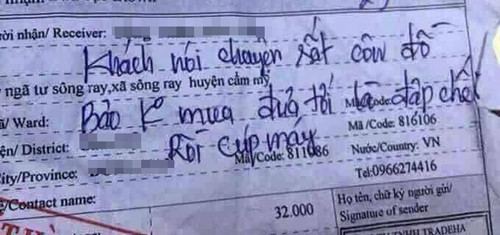 ời nhận/ Receiver:
Khách nói chuyện rất côn đồ
ngã tư sông ray,xã sông ray huyện cẩm mỹ
ã/ Ward:
Bảo K mua đưa tới là đập chết
Mã/Code: 816106
ện/ District:
Rồi cúp máy
Mã/Code: 811086
Nước/Country: VN
ity/Province:
Tel:0966274416
/Contact name:
32.000
Họ tên, chữ ký người gửi/
Signature of sender
TNHH TRADEHA